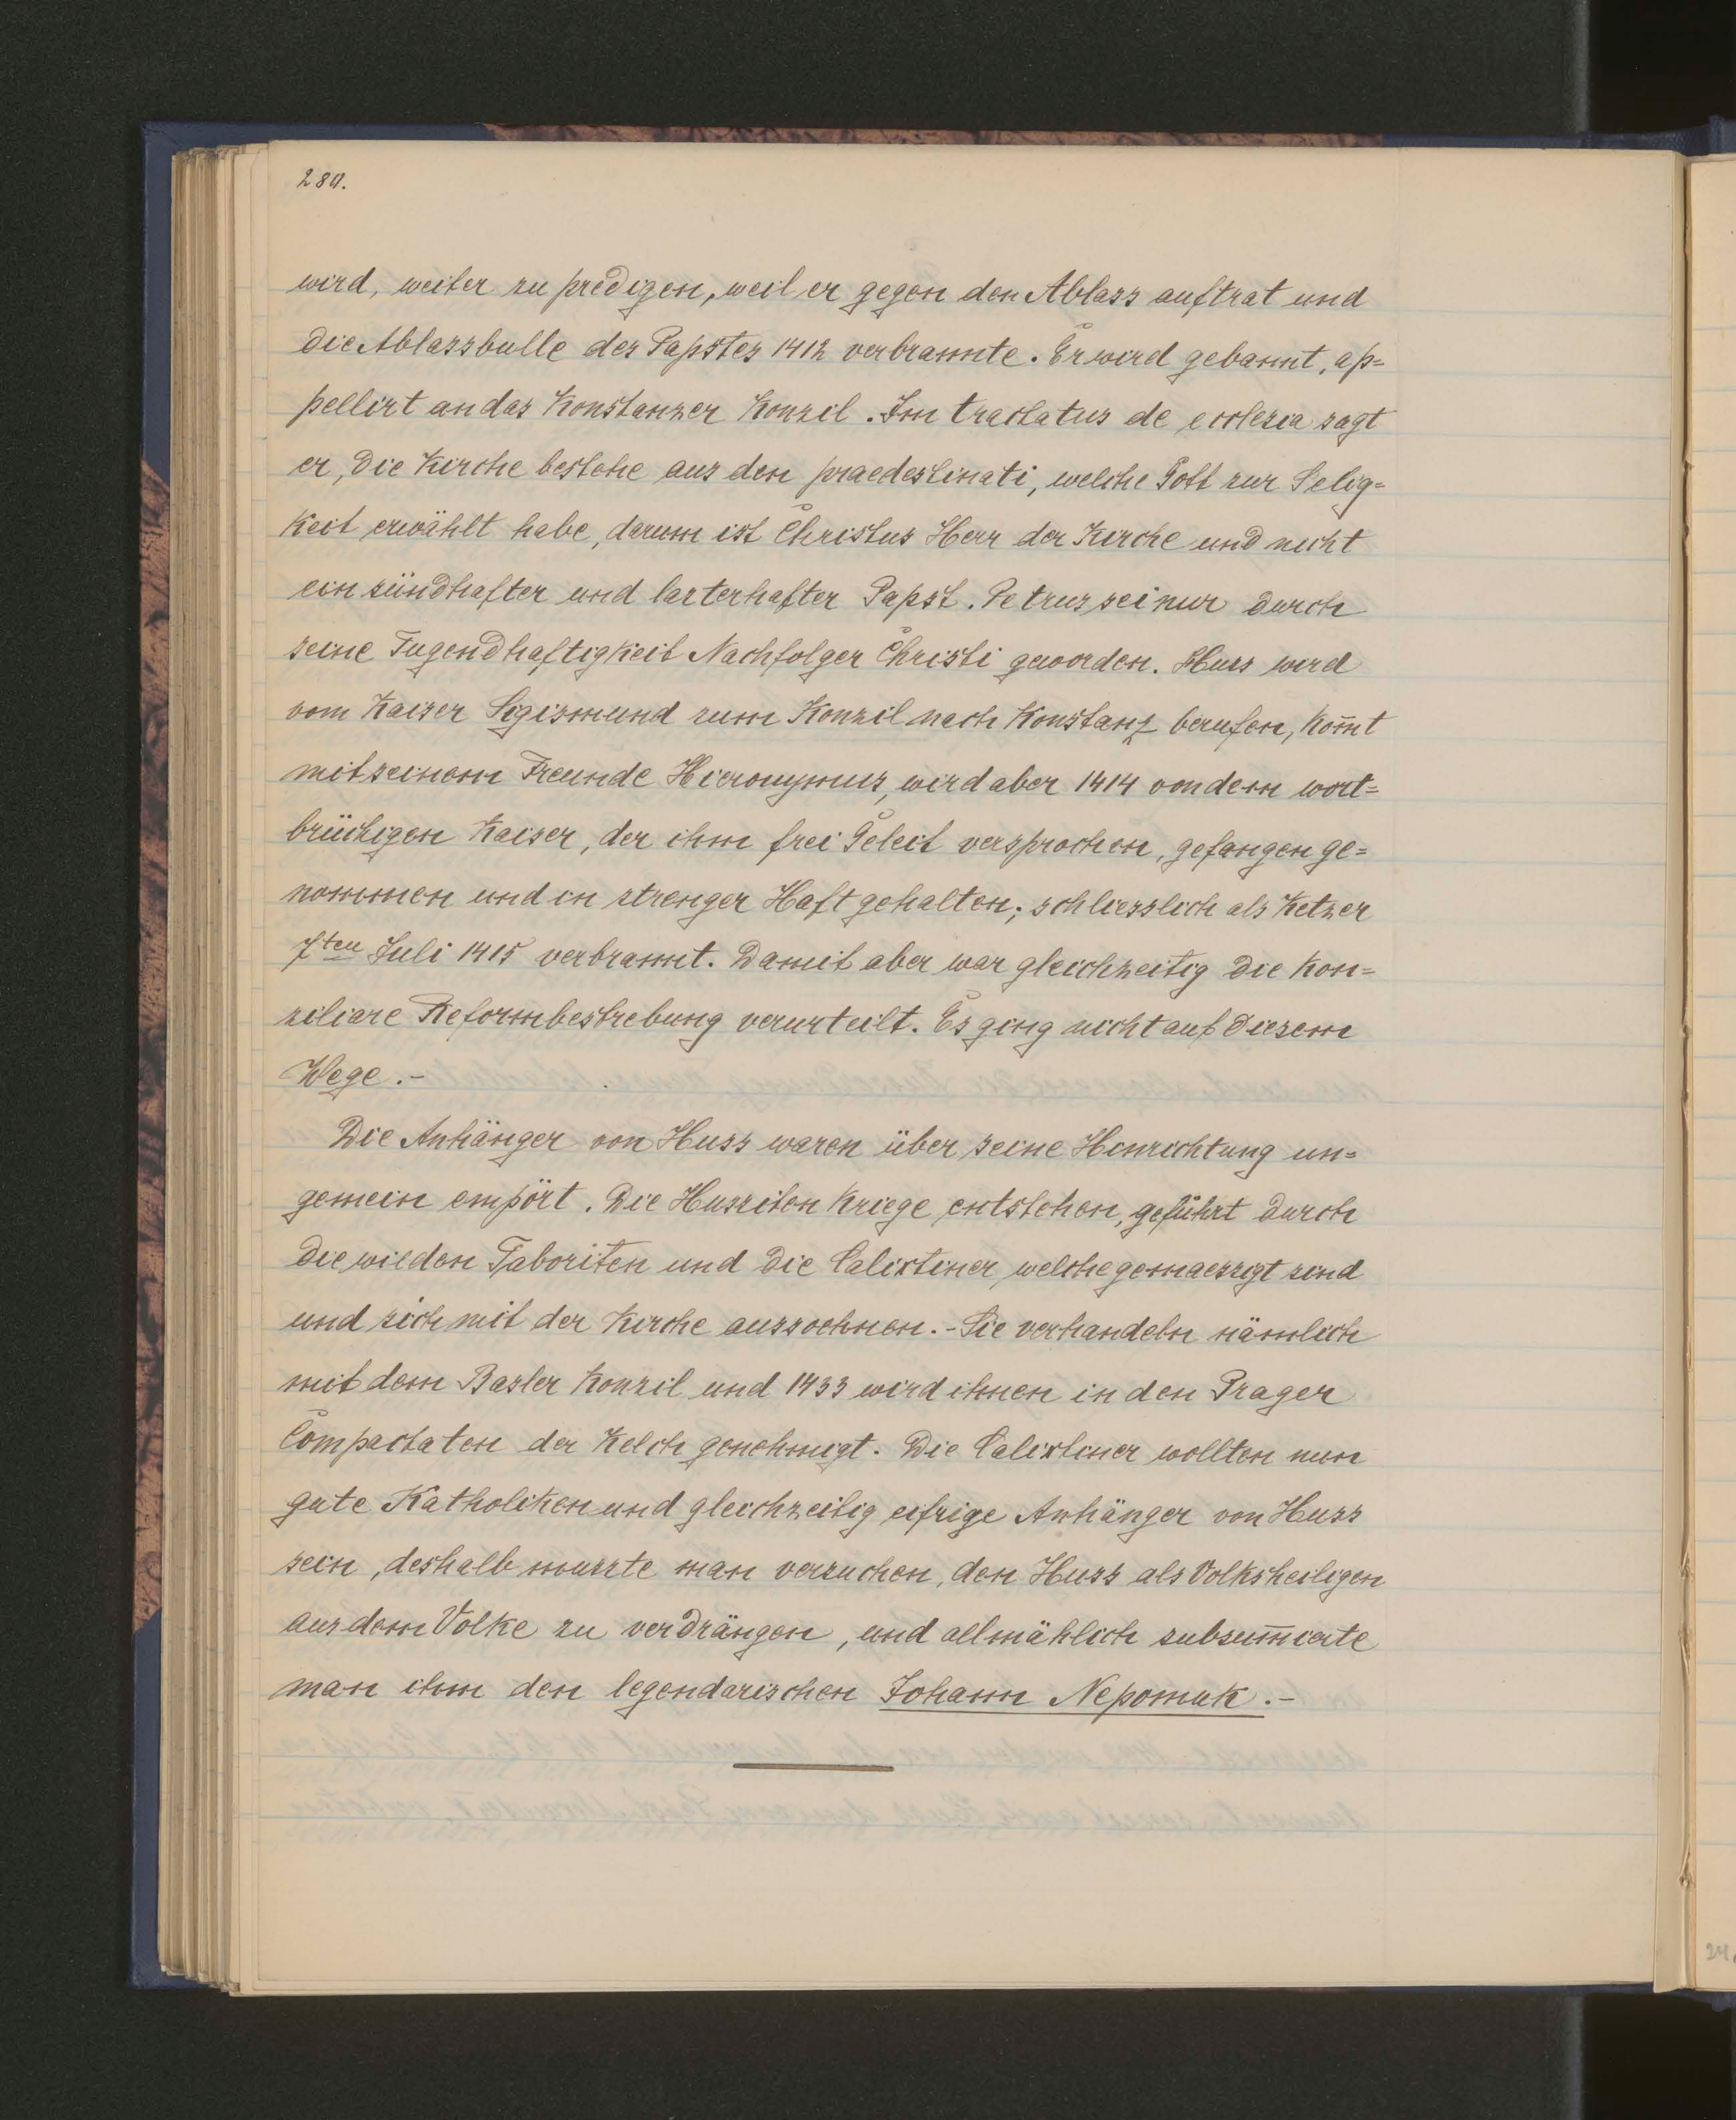 280.
wird, weiter zu predigen, weil er gegen den Ablass auftrat und
die Ablassbulle des Papstes 1412 verbrannte. Er wird gebannt, ap=
pellirt an das Konstanzer Konzil. Im tractatus de ecclesia sagt
er, die Kirche bestehe aus den praedestinati, welche Gott zur Selig=
keit erwählt habe, darum ist Christus Herr der Kirche und nicht
ein sündhafter und lasterhafter Papst. Petrus sei nur durch
seine Tugendhaftigkeit Nachfolger Christi geworden. Huss wird
vom Kaiser Sigismund zum Konzil nach Konstanz berufen, kom̄t
mit seinem Freunde Hieronymus, wird aber 1414 von dem wort=
brüchigen Kaiser, der ihm frei Geleit versprochen, gefangen ge=
nommen und in strenger Haft gehalten; schliesslich als Ketzer
7ten Juli 1415 verbrannt. Damit aber war gleichzeitig die kon=
ziliare Reformbestrebung verurteilt. Es ging nicht auf diesem
Wege.-
Die Anhänger von Huss waren über seine Hinrichtung un=
gemein empört. Die Hussiten Kriege entstehen, geführt durch
die wilden Taboriten und die Calixtiner, welche gemaessigt sind
und sich mit der Kirche aussoehnen.- Sie verhandeln nämlich
mit dem Basler Konzil und 1433 wird ihnen in den Prager
Compactaten der Kelch genehmigt. Die Calixtiner wollten nun
gute Katholiken und gleichzeitig eifrige Anhänger von Huss
sein, deshalb musste man versuchen, den Huss als Volksheiligen
aus dem Volke zu verdrängen, und allmählich subsum̄ierte
man ihm den legendarischen Johann Nepomuk.-